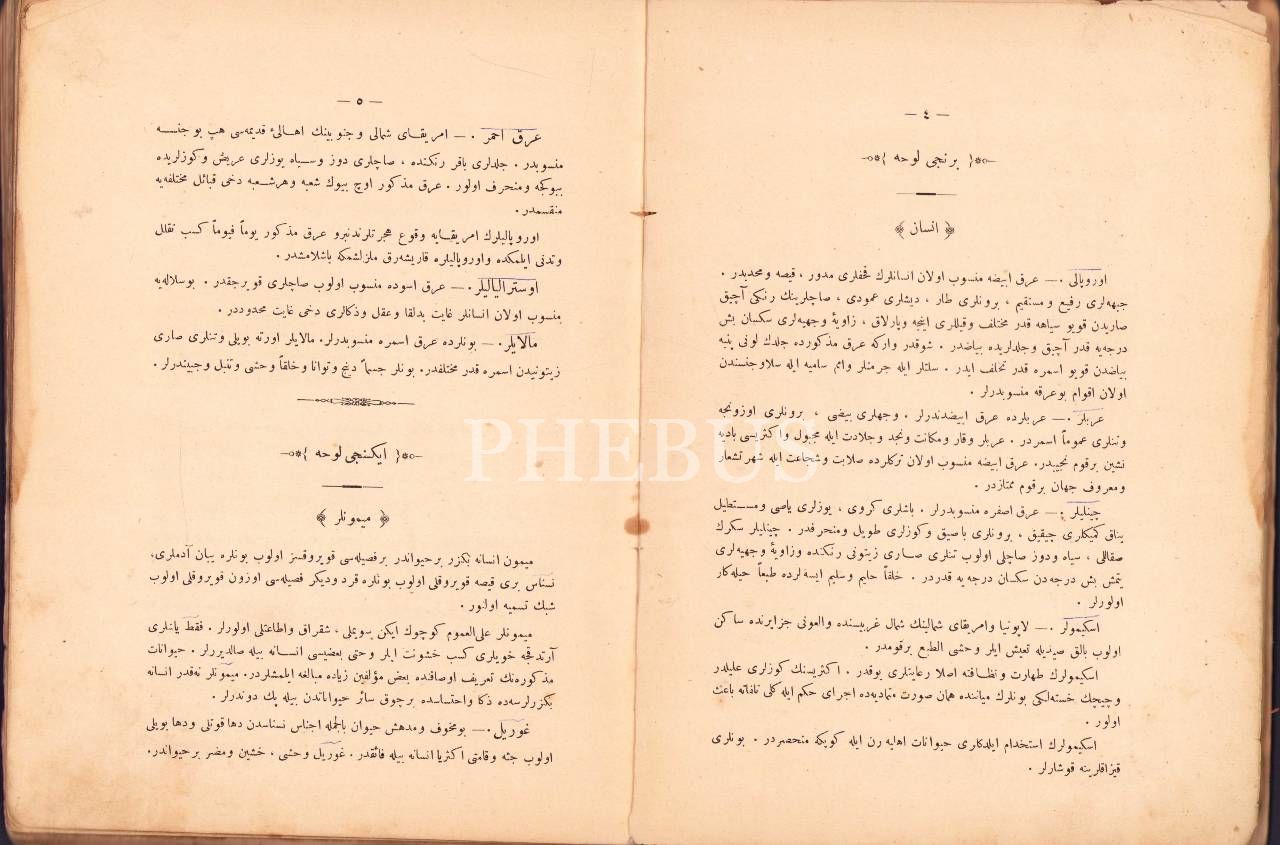 — ٤ —
برنجی لوحه
﴿ انسان ﴾
اوروپالی . — عرق ابیضه منسوب اولان انسانلرك قحفلری مدور ، قیصه ومحدبدر .
جبهه‌لری رفیع ومستقیم ، برونلری طار ، دیشلری عمودی ، صاچلرینك رنكی آچیق
صاریدن قویو سیاهه قدر مختلف وقیللری اینجه وپارلاق ، زاویهٔ وجهیه‌لری سكسان بش
درجه‌یه قدر آچیق وجلدلریده بیاضدر . شوقدر واركه عرق مذكورده جلدك لونی پنبه
بیاضدن قویو اسمره قدر تخلف ایدر . سلتلر ایله جرمنلر وامم سامیه ایله سلاو جنسندن
اولان اقوام بوعرقه منسوبدرلر .
عربلر . — عربلرده عرق ابیضدندرلر . وجهلری بیضی ، برونلری اوزونجه
وتنلری عموماً اسمردر . عربلر وقار ومكانت ونجد وجلادت ایله مجبول واكثریسی بادیه
نشین برقوم نجیبدر . عرق ابیضه منسوب اولان تركلرده صلابت وشجاعت ایله شهرتشعار
ومعروف جهان برقوم ممتازدر .
چینلیلر . — عرق اصفره منسوبدرلر . باشلری كروی ، یوزلری یاصی ومستطیل
یناق كمیكلری چیقیق ، برونلری باصیق وكوزلری طویل ومنحرفدر . چینلیلر سكرك
صقاللی ، سیاه ودوز صاچلی اولوب تنلری صاری زیتونی رنكنده وزاویهٔ وجهیه‌لری
یتمش بش درجه‌دن سكسان درجه‌یه قدردر . خلقاً حلیم وسلیم ایسه‌لرده طبعاً حیله‌كار
اولورلر .
اسكیمولر . — لاپونیا وامریقای شمالینك شمال غربیسنده والعونی جزایرنده ساكن
اولوب بالق صیدیله تعیش ایلر وحشی الطبع برقومدر .
اسكیمولرك طهارت ونظافته اصلا رعایتلری یوقدر . اكثریسنك كوزلری علیلدر
وچیچك خسته‌لكی بونلرك میاننده همان صورت متمادیه‌ده اجرای حكم ایله كلی تلفاته باعث
اولور .
اسكیمولرك استخدام ایلدكاری حیوانات اهلیه رن ایله كوپكه منحصردر . بونلری
قیزاقلرینه قوشارلر .
— ٥ —
عرق احمر . — امریقای شمالی وجنوبینك اهالیٔ قدیمه‌سی هپ بو جنسه
منسوبدر . جلدلری باقر رنكنده ، صاچلری دوز وسیاه یوزلری عریض وكوزلریده
بیوكجه ومنحرف اولور . عرق مذكور اوچ بیوك شعبه وهرشعبه دخی قبائل مختلفه‌یه
منقسمدر .
اوروپالیلرك امریقایه وقوع هجرتلرندنبرو عرق مذكور یوماً فیوماً كسب تقلل
وتدنی ایلمكده واوروپالیلره قاریشه‌رق ملزلشمكه باشلامشدر .
اوسترالیالیلر . — عرق اسوده منسوب اولوب صاچلری قویرجقدر . بوسلاله‌یه
منسوب اولان انسانلر غایت بدلقا وعقل وذكالری دخی غایت محدوددر .
مالایلر . — بونلرده عرق اسمره منسوبدرلر. مالایلر اورته بویلی وتنلری صاری
زیتونیدن اسمره قدر مختلفدر. بونلر جسماً دینج وتوانا وخلقاً وحشی وتنبل وجبیندرلر .
ایكنجی لوحه
﴿ میمونلر ﴾
میمون انسانه بكزر برحیواندر برفصیله‌سی قویروقسز اولوب بونلره یبان آدملری،
نسناس بری قیصه قویروقلی اولوب بونلره قرد ودیكر فصیله‌سی اوزون قویروقلی اولوب
شبك تسمیه اولنور .
میمونلر علی‌العموم كوچوك ایكن سویملی ، شقراق واطاعتلی اولورلر . فقط یاشلری
آرتدقجه خویلری كسب خشونت ایلر وحتی بعضیسی انسانه بیله صالدیررلر . حیوانات
مذكوره‌نك تعریف اوصافنده بعض مؤلفین زیاده مبالغه ایلمشلردر. میمونلر نه‌قدر انسانه
بكزرلرسه‌ده ذكا واحتساسده برچوق سائر حیواناتدن بیله پك دوندرلر .
غوریل . — بومخوف ومدهش حیوان بالجمله اجناس نسناسدن دها قوتلی ودها بویلی
اولوب جثه وقامتی اكثریا انسانه بیله فائقدر . غوریل وحشی ، خشین ومضر برحیواندر.
PHEBUS